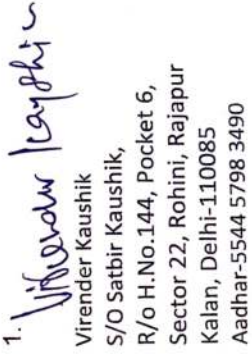 1. Virender Kaushik
Virender Kaushik
S/O Satbir Kaushik,
R/o H.No.144, Pocket 6,
Sector 22, Rohini, Rajapur
Kalan, Delhi-110085
Aadhar-5544 5798 3490